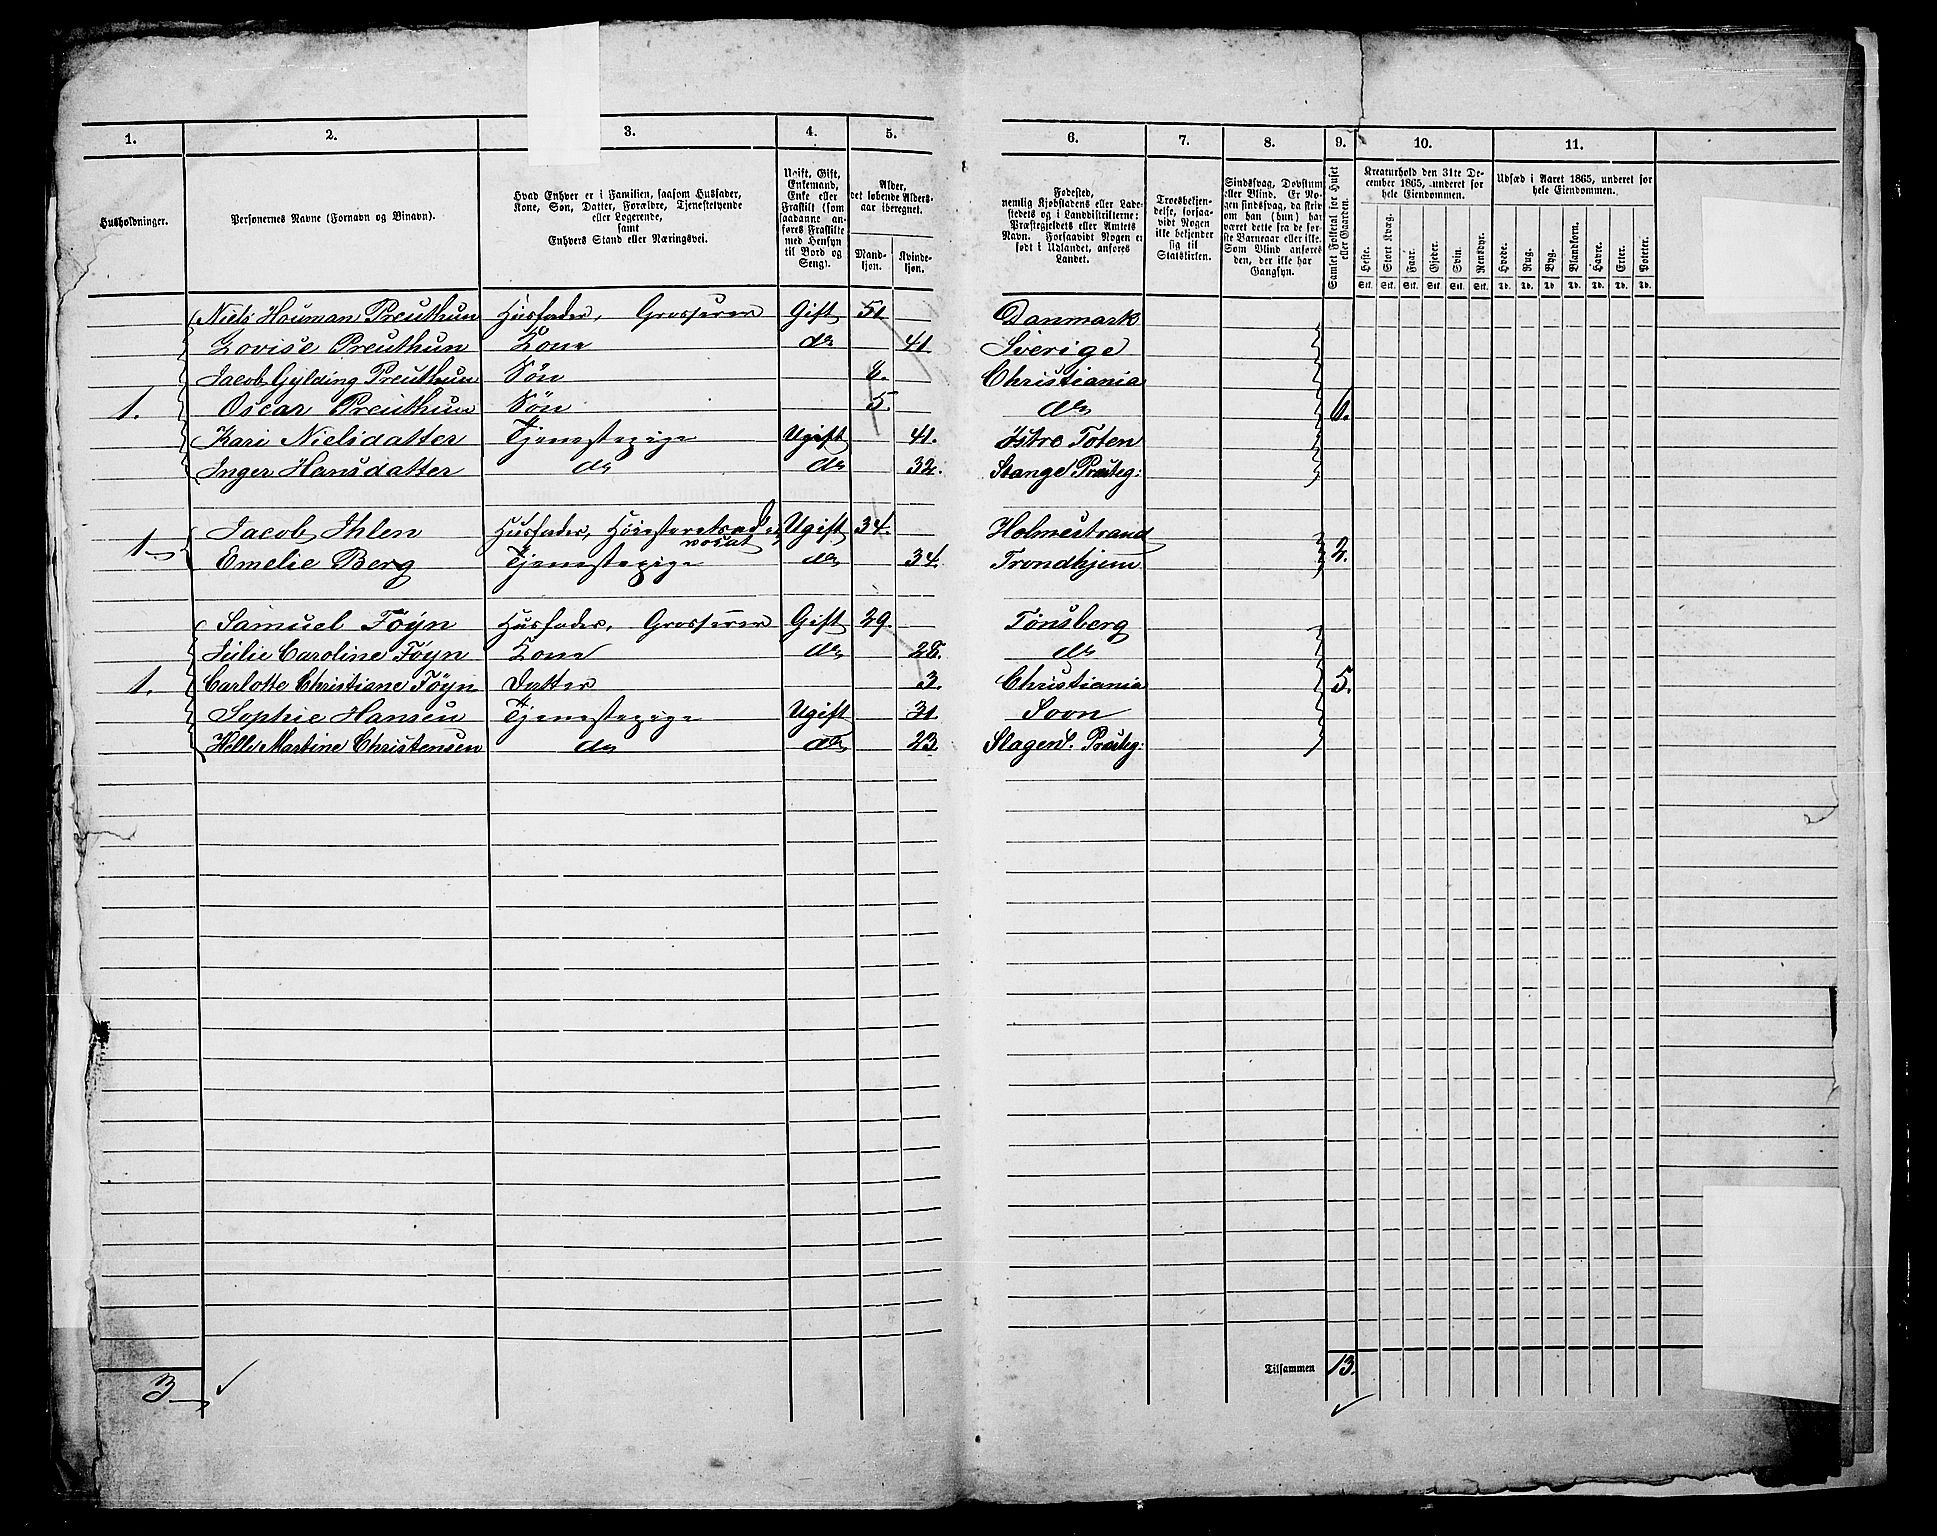 1. 2. 3. 4. 5. 6. 7. 8. 9. 10. 11.
Husholdninger.
Personernes Navne (Fornavn og Binavn).
Hvad Enhver er i Familien, saasom Husfader,
Kone, Søn, Datter, Forældre, Tjenestetyende
eller Logerende,
samt
Enhvers Stand eller Næringsvei.
Ugift, Gift,
Enkemand,
Enke eller
Fraskilt (som
saadanne an-
føres Fraskilte
med Hensyn
til Bord og
Seng).
Alder,
det løbende Alders-
aar iberegnet.
Mand-
kjøn.
Kvinde-
kjøn.
Fødested,
nemlig Kjøbstadens eller Lade-
stedets og i Landdistrikterne:
Præstegjeldets eller Amtets
Navn. Forsaavidt Nogen er
født i Udlandet, anføres
Landet.
Troesbekjen-
delse, forsaa-
vidt Nogen
ikke bekjender
sig til
Statskirken.
Sindssvag, Døvstum
eller Blind. Er No-
gen sindssvag, da skriv
om han (hun) har
været dette fra de før-
ste Barneaar eller ikke.
Som Blind anføres
den, der ikke har
Gangsyn.
Samlet Folketal for Huset
eller Gaarden.
Kreaturhold den 31te De-
cember 1865, underet for
hele Eiendommen.
Heste. Stort Kvæg. Faar. Gjeder. Svin. Rensdyr.
Stk. Stk. Stk. Stk. Stk. Stk.
Udsæd i Aaret 1865, underet for
hele Eiendommen.
Hvede. Rug. Byg. Blandkorn. Havre. Erter. Poteter.
Td. Td. Td. Td. Td. Td. Td.
Niels Hauman Preuthun Husfader, Grosserer Gift 51 Danmark
Lovise Preuthun Kone do 41 Sverige
Jacob Gylding Preuthun Søn 8. Christiania
1. Oscar Preuthun Søn 5. do 6.
Kari Nielsdatter Tjenestepige Ugift 41. Østre Toten
Inger Hansdatter do do 32. Stange Præsteg:
Jacob Ihlen Husfader, Høiesteretsad- Ugift 34. Holmestrand
vocat
1 Emelie Berg Tjenestepige do 34. Trondhjem 2.
Samuel Føyn Husfader, Grosserer Gift 29. Tønsberg
Julie Caroline Føyn Kone do 28. do
1. Carlotte Christiane Føyn Datter 3. Christiania 5.
Sophie Hansen Tjenestepige Ugift 31. Soon
Helle Martine Christensen do do 23. Slagens Præsteg:
Tilsammen 13.
3